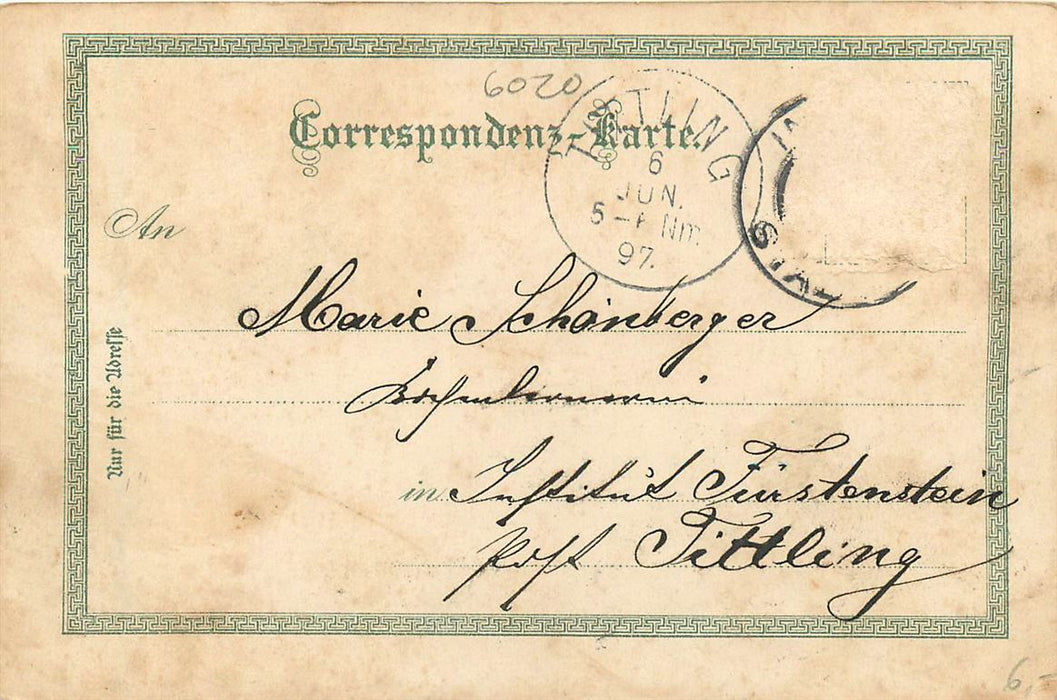 6020
Correspondenz-Karte.
TITTLING
6
JUN.
5-6 Nm.
97.
An
Marie Schönberger
Nur für die Adresse
in Institut Fürstenstein
Post Tittling
6,-